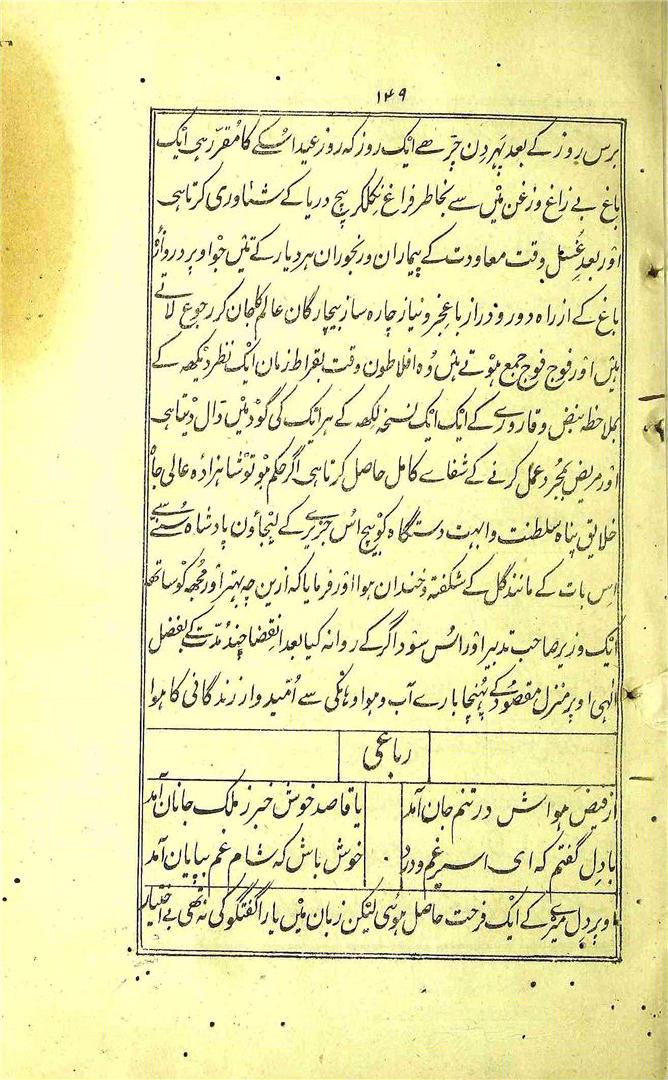 ۱۴۹
برس روز کے بعد پہر دن چڑھے ایک روز کہ روز عید اسکے کا مقرر ہی ایک
باغ بے زاغ و زغن میں سے بخاطر فراغ نکلکر بیچ دریا کے شناوری کرتا ہی
اور بعد غسل وقت معاودت کے بیماران و رنجوران ہر دیار کے تئیں جو اوپر دروازے
باغ کے از راہ دور و دراز با عجز و نیاز چارہ ساز بیچارگان عالم کا جان کر رجوع لاتے
ہیں اور فوج فوج جمع ہوتے ہیں وہ افلاطون وقت بقراط زمان ایک نظر دیکھ کے
بملاحظہ نبض و قارورے کے ایک ایک نسخہ لکھ کے ہر ایک کی گود میں ڈال دیتا ہی
اور مریض بمجرد عمل کرنے کے شفاے کامل حاصل کرتا ہی اگر حکم ہو تو شاہزادہ عالی جاہ
خلایق پناہ سلطنت و ابہت دستگاہ کو بیچ اس جزیرے کے لیجاؤن پادشاہ سننے سے
اس بات کے مانند گل کے شگفتہ و خندان ہوا اور فرمایا کہ ازین چہ بہتر اور مجھ کو ساتھ
ایک وزیر صاحب تدبیر اور اس سوداگر کے روانہ کیا بعد انقضا چند مدت کے بفضل
الٰہی اوپر منزل مقصود کے پہنچا بارے آب و ہوا وہانکی سے امیدوار زندگانی کا ہوا
رباعی
از فیض ہواش در تنم جان آمد یا قاصد خوش خبر ز ملک جانان آمد
با دل گفتم کہ ای اسیر غم و درد خوش باش کہ شام غم بپایان آمد
اوپر دل میرے کے ایک فرحت حاصل ہوئی لیکن زبان میں یارا گفتگو کی نہ تھی بے اختیار